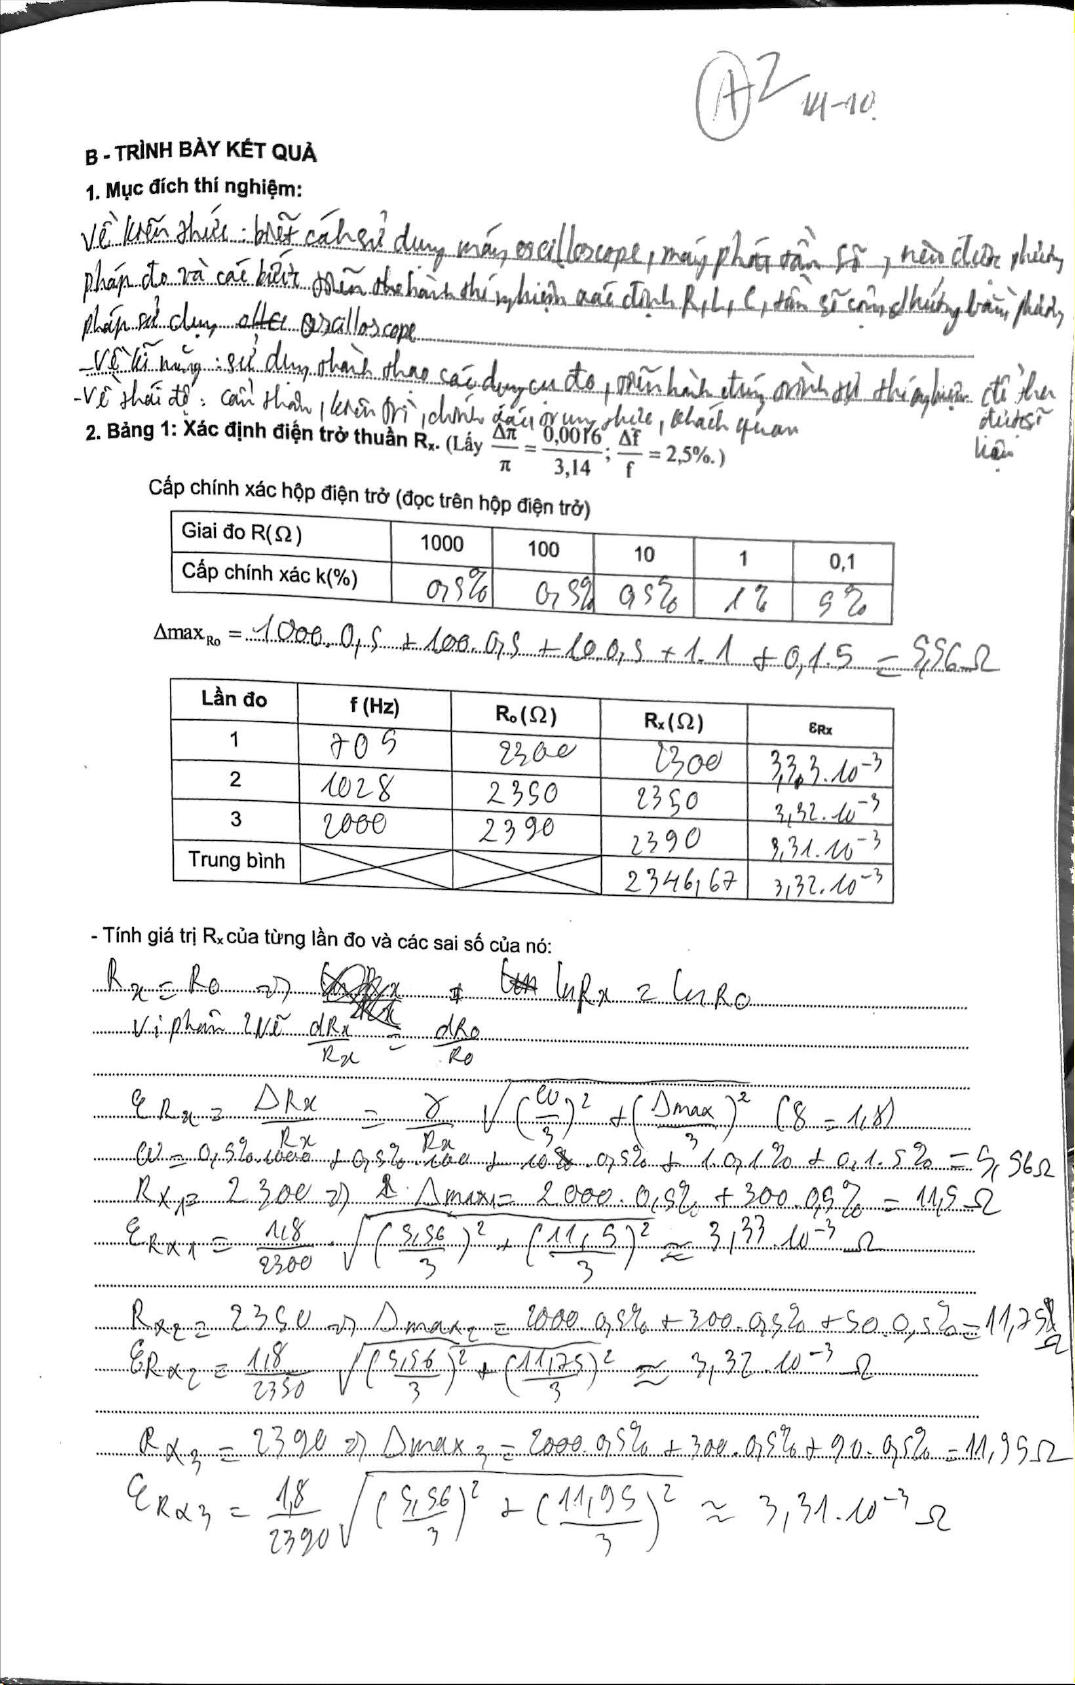 A2
14-10.
B - TRÌNH BÀY KẾT QUẢ
1. Mục đích thí nghiệm:
Về kiến thức: biết cách sử dụng máy oscilloscope, máy phát tần số, nắm được phương
pháp đo và các bước tiến hành thí nghiệm xác định R, L, C, tần số cộng hưởng bằng phương
pháp sử dụng oscilloscope
-Về kĩ năng: sử dụng thành thạo các dụng cụ đo, tiến hành đúng trình tự thí nghiệm để thu được số liệu
-Về thái độ: cẩn thận, kiên trì, chính xác, trung thực, khách quan
2. Bảng 1: Xác định điện trở thuần Rₓ. (Lấy Δπ/π = 0,0016/3,14; Δf/f = 2,5%.)
Cấp chính xác hộp điện trở (đọc trên hộp điện trở)
Giai đo R(Ω) 1000 100 10 1 0,1
Cấp chính xác k(%) 0,5% 0,5% 0,5% 1% 5%
Δmax_Ro = 1000.0,5 + 100.0,5 + 10.0,5 + 1.1 + 0,1.5 = 5,56Ω
Lần đo f (Hz) Rₒ(Ω) Rₓ(Ω) εRx
1 705 2300 2300 3,33.10⁻³
2 1028 2350 2350 3,32.10⁻³
3 2000 2390 2390 3,31.10⁻³
Trung bình 2346,67 3,32.10⁻³
- Tính giá trị Rₓ của từng lần đo và các sai số của nó:
Rx = R0 => lnRx = lnR0
Vi phân 2 vế dRx/Rx = dR0/R0
εRx = ΔRx/Rx = γ/Rx √((ω/3)² + (Δmax/3)²) (γ = 1,8)
ω = 0,5%.1000 + 0,5%.100 + 10.0,5% + 1.0,1% + 0,1.5% = 5,56Ω
Rx1 = 2300 => Δmax1 = 2000.0,5% + 300.0,5% = 11,5Ω
εRx1 = 1,8/2300 . √((5,56/3)² + (11,5/3)²) ≈ 3,33.10⁻³ Ω
Rx2 = 2350 => Δmax2 = 2000.0,5% + 300.0,5% + 50.0,5% = 11,75Ω
εRx2 = 1,8/2350 √((5,56/3)² + (11,75/3)²) ≈ 3,32.10⁻³ Ω
Rx3 = 2390 => Δmax3 = 2000.0,5% + 300.0,5% + 90.0,5% = 11,95Ω
εRx3 = 1,8/2390 √((5,56/3)² + (11,95/3)²) ≈ 3,31.10⁻³ Ω